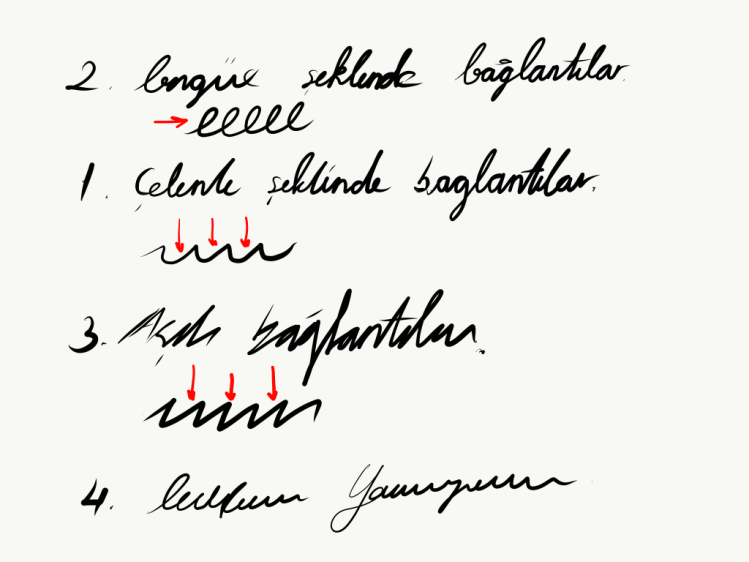 2. bngüx şeklinde bağlantılar.
1. Çelenk şeklinde baglantılar.
3. Açılı bağlantılar.
4.